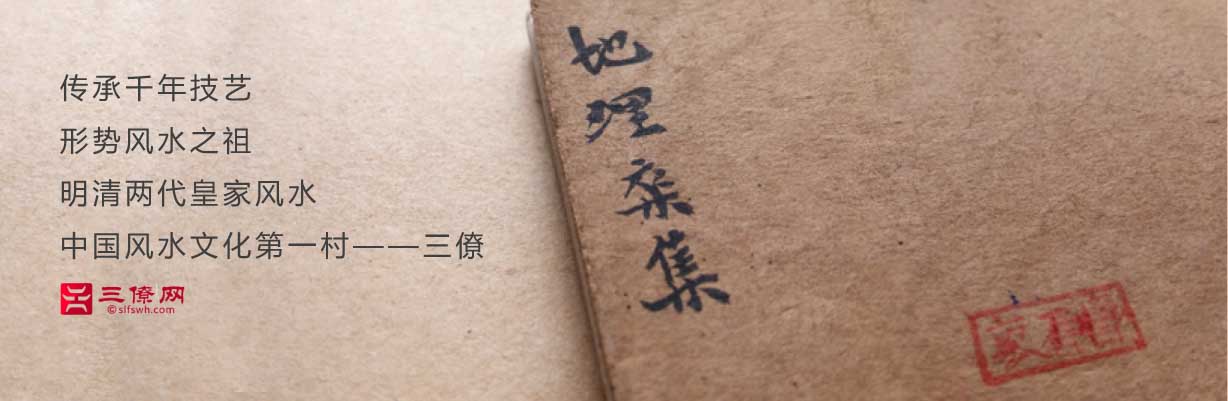 传承千年技艺
形势风水之祖
明清两代皇家风水
中国风水文化第一村——三僚
三僚网
©slfswh.com
地理弃集